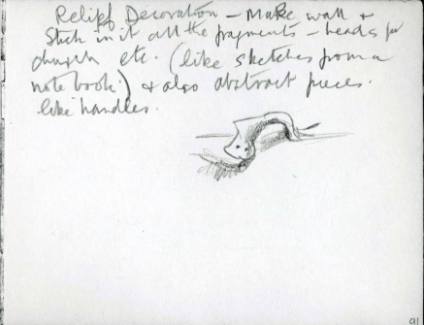 Relief Decoration – Make wall &
stick in it all the fragments – heads for
church etc. (like sketches from a
note book) & also abstract pieces.
like handles.
91